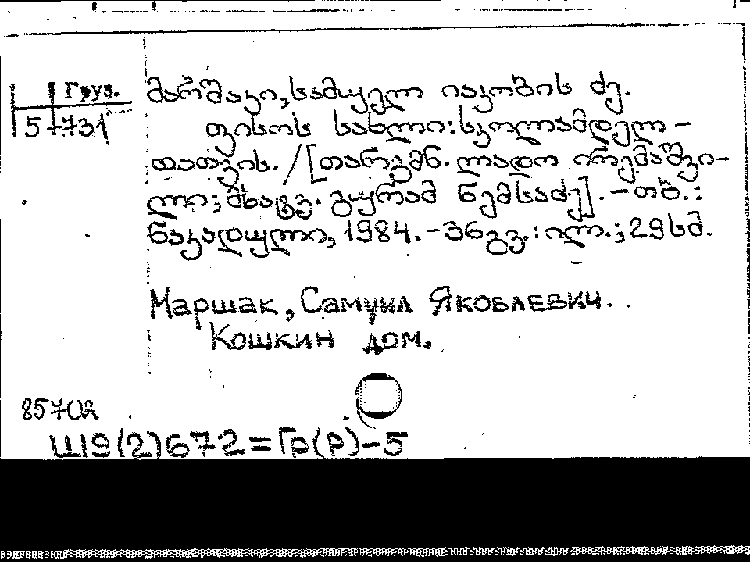 Груз.
5-731
მარშაკი, სამუელ იაკობის ძე.
ფისოს სახლი: სკოლამდელ-
თათვის. / [თარგმნ. ლადო ირემაშვი-
ლი; მხატვ. გურამ ნემსაძე]. - თბ.:
ნაკადული, 1984. - 36 გვ.: ილ.; 29 სმ.
Маршак, Самуил Яковлевич.
Кошкин дом.
Ш19(2)672=Гр(Р)-5